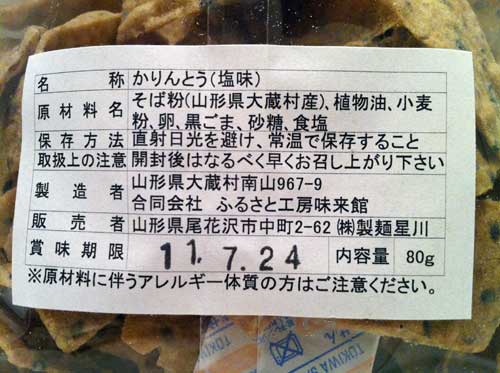 名称 かりんとう(塩味)
原材料名 そば粉(山形県大蔵村産)、植物油、小麦
粉、卵、黒ごま、砂糖、食塩
保存方法 直射日光を避け、常温で保存すること
取扱上の注意 開封後はなるべく早くお召し上がり下さい
製造者 山形県大蔵村南山967-9
合同会社 ふるさと工房味来館
販売者 山形県尾花沢市中町2-62 ㈱製麺星川
賞味期限 11.7.24 内容量 80g
※原材料に伴うアレルギー体質の方はご注意ください。
TOKIWA